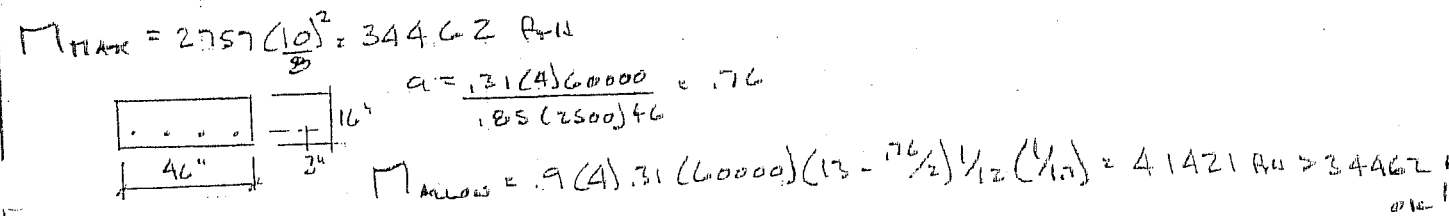 M MAX = 2757 (10)²/8 = 34462 ft-lb
a = .31(4)60000 / .85(2500)46 = .76
16"
3"
46"
M ALLOW = .9(4).31(60000)(13 - .76/2) 1/12 (1/1.7) = 41421 ft-lb > 34462
ok!